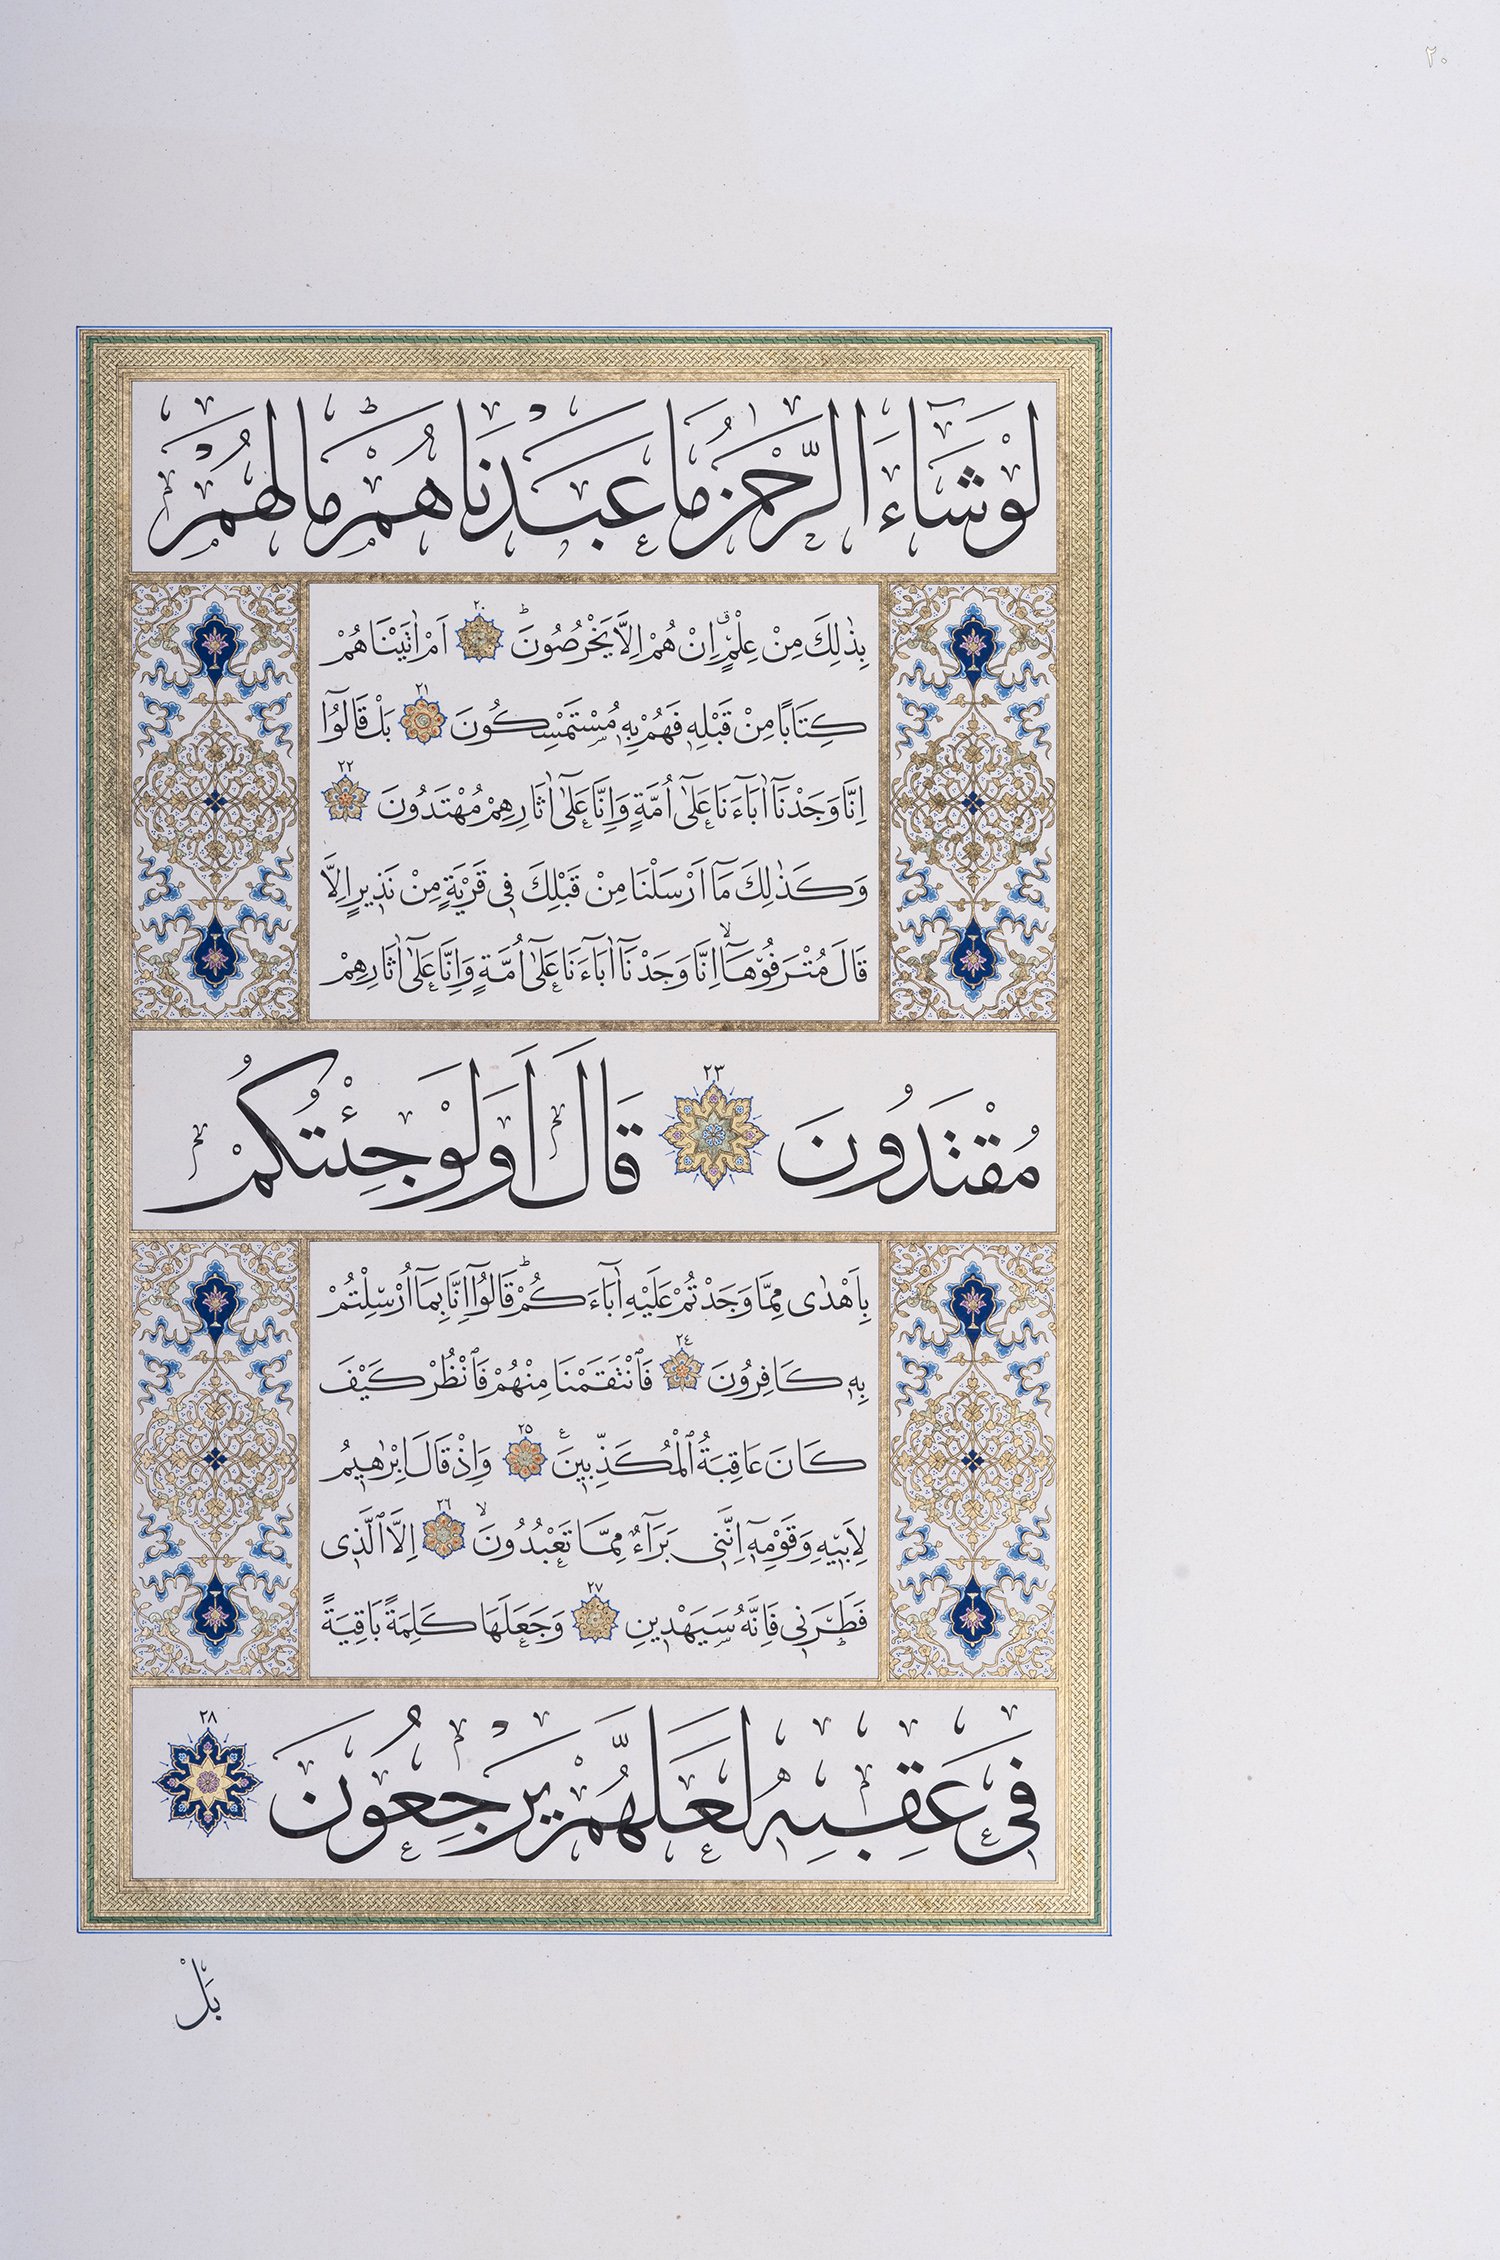 ٢٠
لَوْ شَٓاءَ الرَّحْمٰنُ مَا عَبَدْنَاهُمْۜ مَا لَهُمْ
بِذٰلِكَ مِنْ عِلْمٍۗ اِنْ هُمْ اِلَّا يَخْرُصُونَۜ ٢٠ اَمْ اٰتَيْنَاهُمْ
كِتَابًا مِنْ قَبْلِهِ فَهُمْ بِهِ مُسْتَمْسِكُونَ ٢١ بَلْ قَالُٓوا
اِنَّا وَجَدْنَٓا اٰبَٓاءَنَا عَلٰٓى اُمَّةٍ وَاِنَّا عَلٰٓى اٰثَارِهِمْ مُهْتَدُونَ ٢٢
وَكَذٰلِكَ مَٓا اَرْسَلْنَا مِنْ قَبْلِكَ فِى قَرْيَةٍ مِنْ نَذِيرٍ اِلَّا
قَالَ مُتْرَفُوهَٓاۙ اِنَّا وَجَدْنَٓا اٰبَٓاءَنَا عَلٰٓى اُمَّةٍ وَاِنَّا عَلٰٓى اٰثَارِهِمْ
مُقْتَدُونَ ٢٣ قَالَ اَوَلَوْ جِئْتُكُمْ
بِاَهْدٰى مِمَّا وَجَدْتُمْ عَلَيْهِ اٰبَٓاءَكُمْۜ قَالُٓوا اِنَّا بِمَٓا اُرْسِلْتُمْ
بِهِ كَافِرُونَ ٢٤ فَانْتَقَمْنَا مِنْهُمْ فَانْظُرْ كَيْفَ
كَانَ عَاقِبَةُ الْمُكَذِّبِينَ ع ٢٥ وَاِذْ قَالَ اِبْرٰهِيمُ
لِاَبِيهِ وَقَوْمِهِٓ اِنَّنِى بَرَٓاءٌ مِمَّا تَعْبُدُونَۙ ٢٦ اِلَّا الَّذِى
فَطَرَنِى فَاِنَّهُ سَيَهْدِينِ ٢٧ وَجَعَلَهَا كَلِمَةً بَاقِيَةً
فِى عَقِبِهِ لَعَلَّهُمْ يَرْجِعُونَ ٢٨
بَلْ